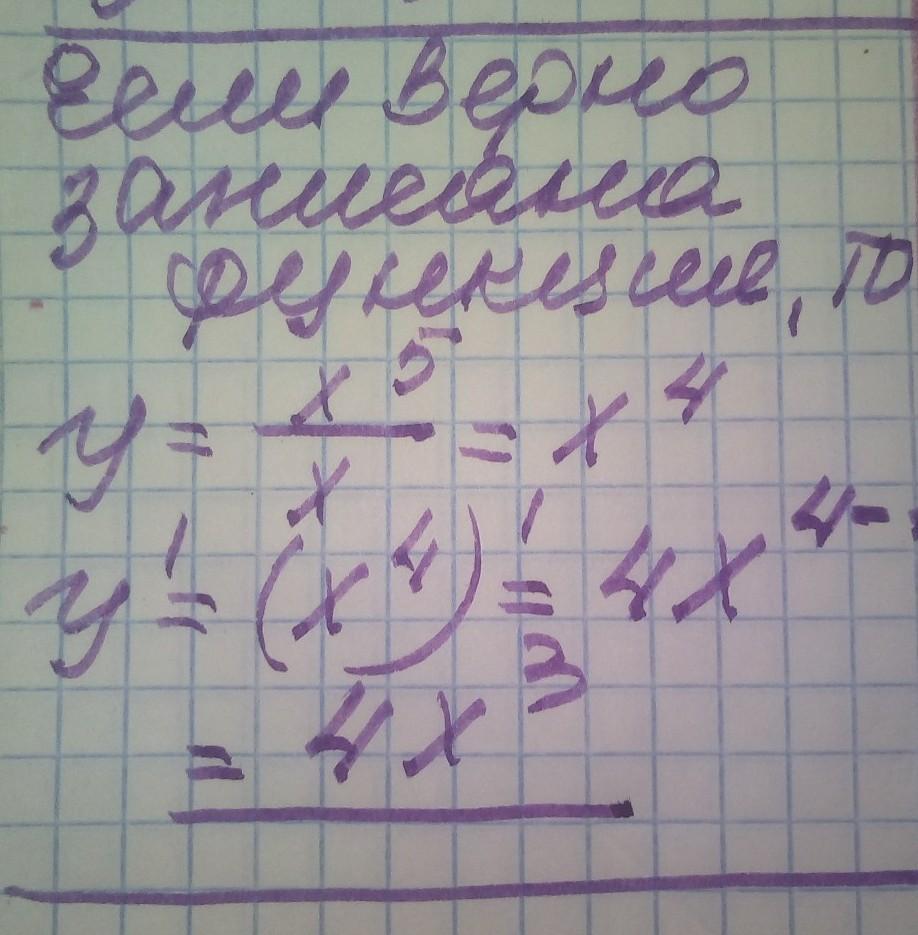 Если верно
записана
функция, то
y = x^5/x = x^4
y' = (x^4)' = 4x^4-
= 4x^3